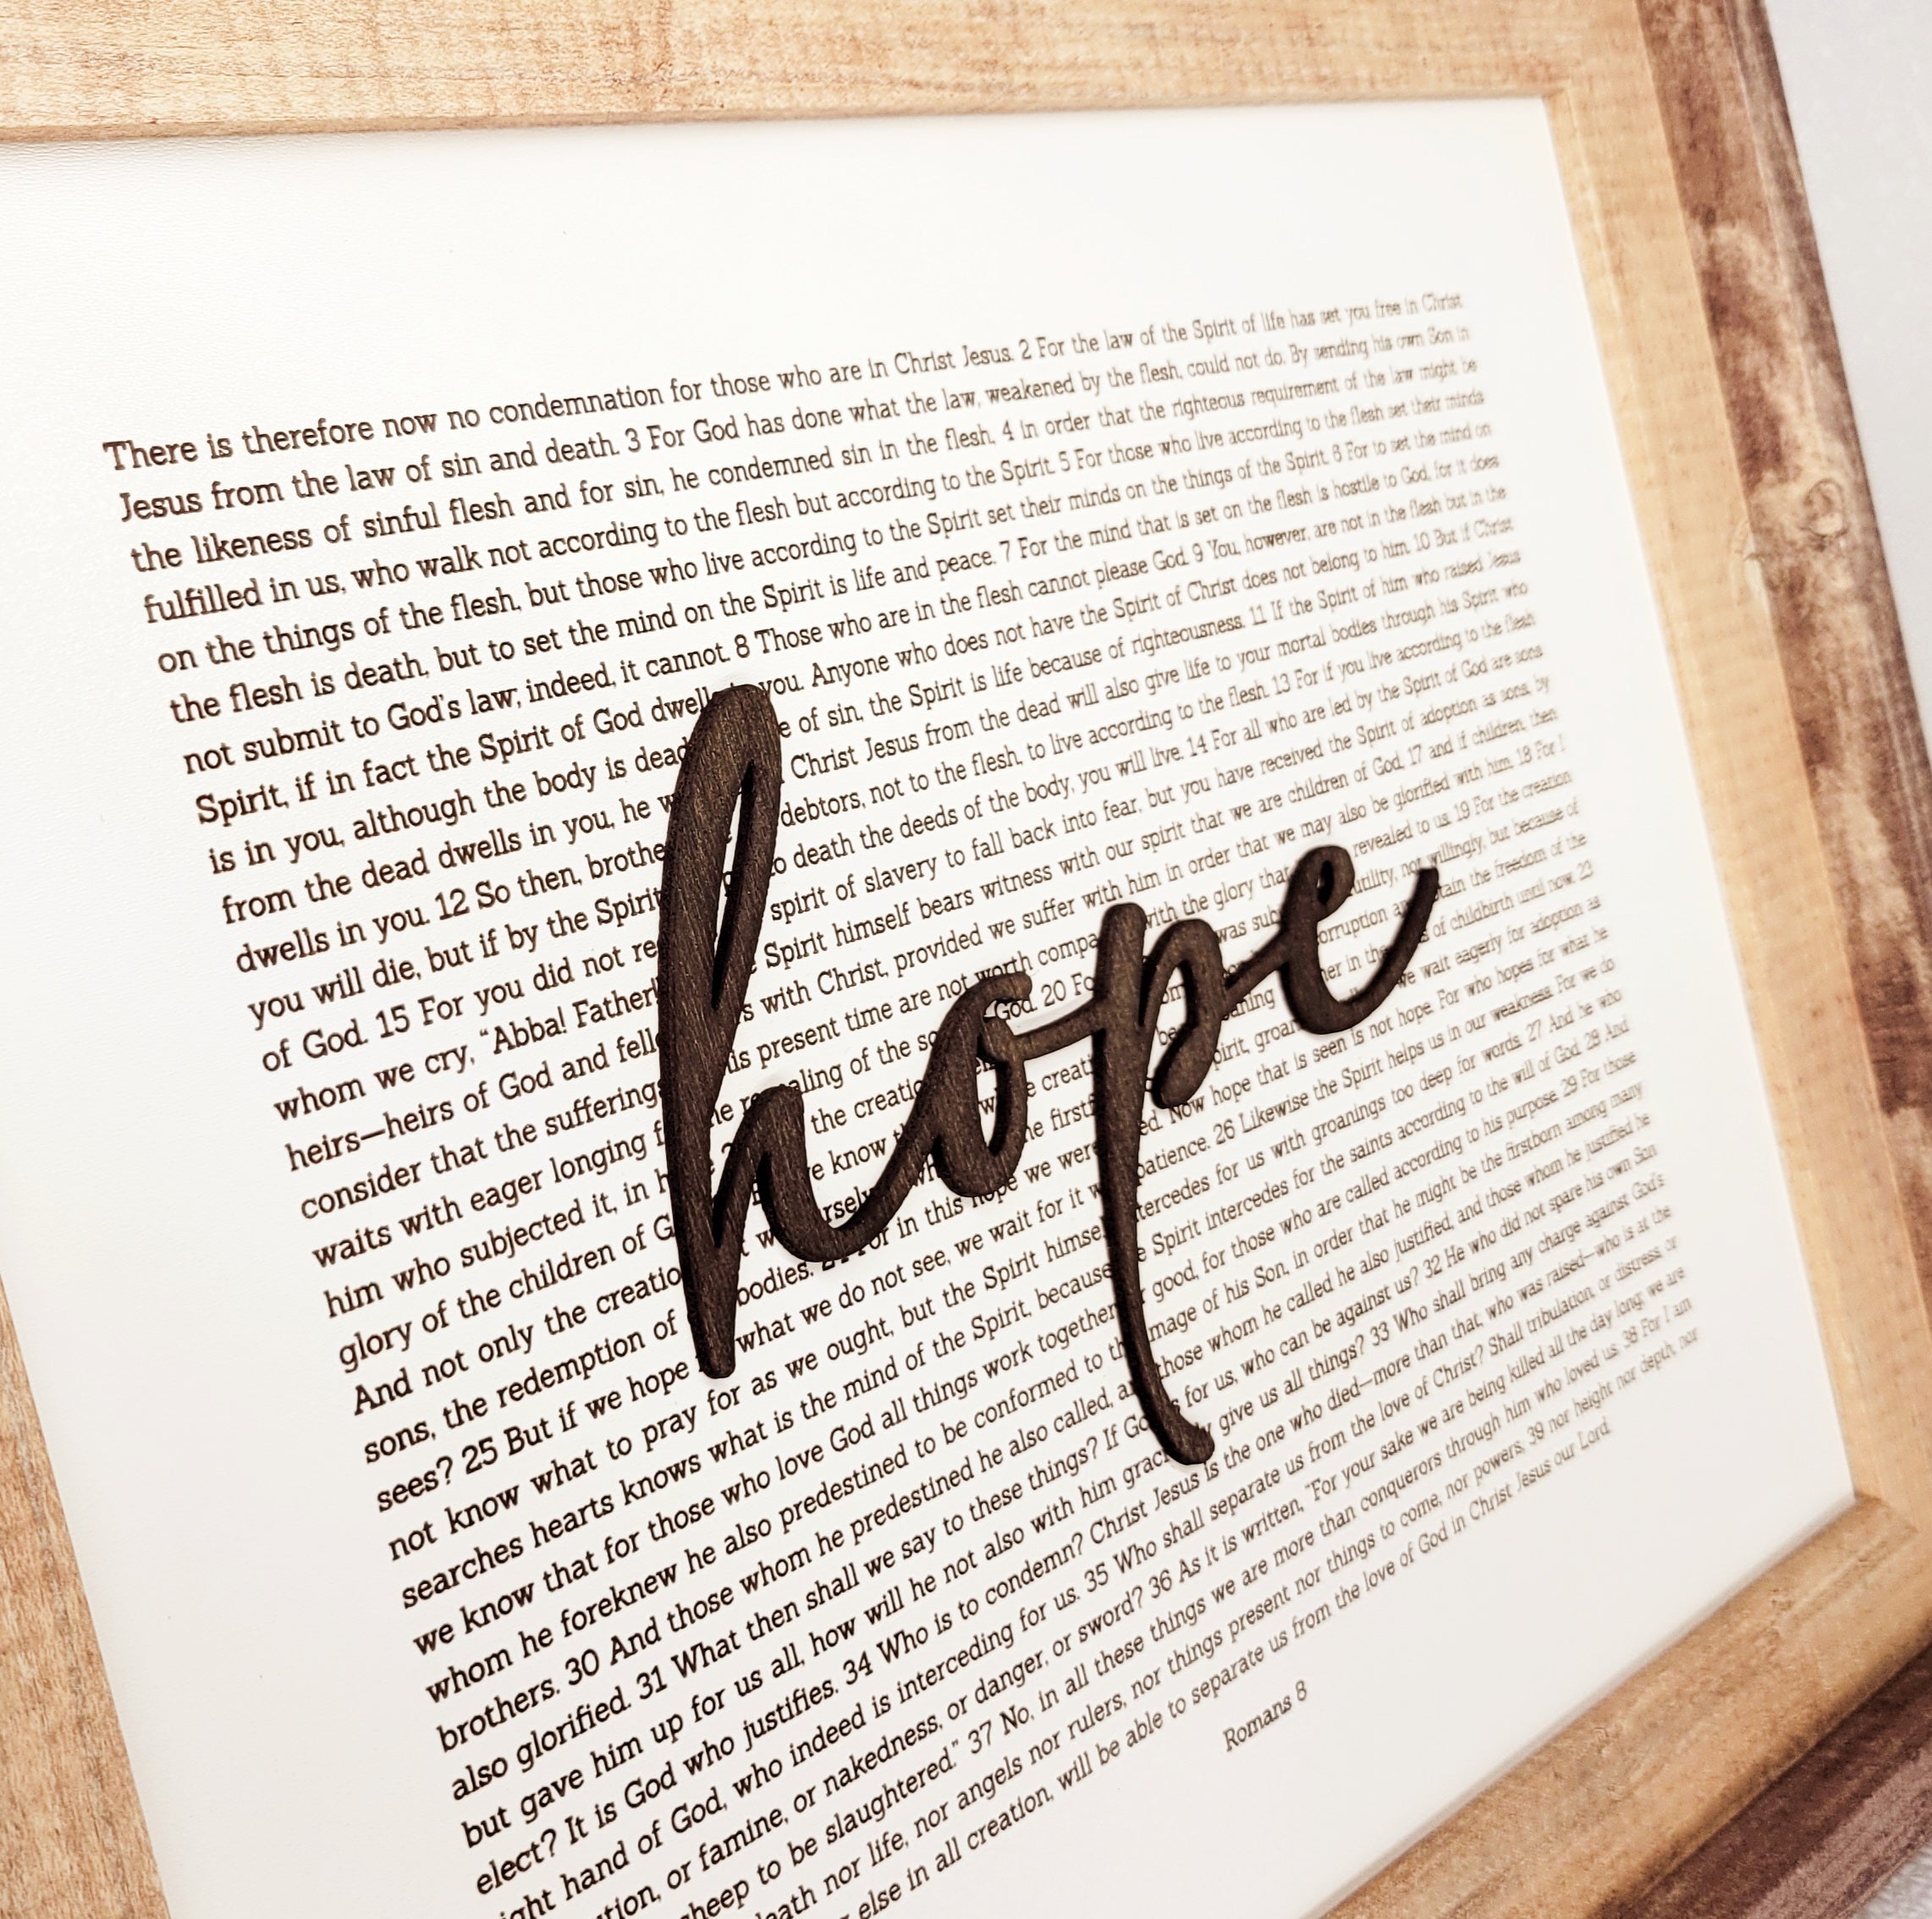 There is therefore now no condemnation for those who are in Christ Jesus. 2 For the law of the Spirit of life has set you free in Christ
Jesus from the law of sin and death. 3 For God has done what the law, weakened by the flesh, could not do. By sending his own Son in
the likeness of sinful flesh and for sin, he condemned sin in the flesh, 4 in order that the righteous requirement of the law might be
fulfilled in us, who walk not according to the flesh but according to the Spirit. 5 For those who live according to the flesh set their minds
on the things of the flesh, but those who live according to the Spirit set their minds on the things of the Spirit. 6 For to set the mind on
the flesh is death, but to set the mind on the Spirit is life and peace. 7 For the mind that is set on the flesh is hostile to God, for it does
not submit to God's law; indeed, it cannot. 8 Those who are in the flesh cannot please God. 9 You, however, are not in the flesh but in the
Spirit, if in fact the Spirit of God dwells you. Anyone who does not have the Spirit of Christ does not belong to him. 10 But if Christ
is in you, although the body is dead of sin, the Spirit is life because of righteousness. 11 If the Spirit of him who raised Jesus
from the dead dwells in you, he Christ Jesus from the dead will also give life to your mortal bodies through his Spirit who
dwells in you. 12 So then, brothe debtors, not to the flesh, to live according to the flesh. 13 For if you live according to the flesh
you will die, but if by the Spirit to death the deeds of the body, you will live. 14 For all who are led by the Spirit of God are sons
of God. 15 For you did not re spirit of slavery to fall back into fear, but you have received the Spirit of adoption as sons, by
whom we cry, "Abba! Father! Spirit himself bears witness with our spirit that we are children of God, 17 and if children, then
heirs—heirs of God and fell with Christ, provided we suffer with him in order that we may also be glorified with him. 18 For I
consider that the sufferings this present time are not worth compa with the glory that revealed to us. 19 For the creation
waits with eager longing the revealing of the so God. 20 Fo was sub utility, not willingly, but because of
him who subjected it, in the creatio corruption tain the freedom of the
glory of the children of we know creat groaning in the of childbirth until now. 23
And not only the creatio the firstf Spirit, groan we wait eagerly for adoption as
sons, the redemption of bodies. 24 For in this hope we were Now hope that is seen is not hope. For who hopes for what he
sees? 25 But if we hope what we do not see, we wait for it patience. 26 Likewise the Spirit helps us in our weakness. For we do
not know what to pray for as we ought, but the Spirit himself intercedes for us with groanings too deep for words. 27 And he who
searches hearts knows what is the mind of the Spirit, because the Spirit intercedes for the saints according to the will of God. 28 And
we know that for those who love God all things work together good, for those who are called according to his purpose. 29 For those
whom he foreknew he also predestined to be conformed to the image of his Son, in order that he might be the firstborn among many
brothers. 30 And those whom he predestined he also called, and those whom he called he also justified, and those whom he justified he
also glorified. 31 What then shall we say to these things? If God is for us, who can be against us? 32 He who did not spare his own Son
but gave him up for us all, how will he not also with him graciously give us all things? 33 Who shall bring any charge against God's
elect? It is God who justifies. 34 Who is to condemn? Christ Jesus is the one who died—more than that, who was raised—who is at the
ight hand of God, who indeed is interceding for us. 35 Who shall separate us from the love of Christ? Shall tribulation, or distress, or
ution, or famine, or nakedness, or danger, or sword? 36 As it is written, "For your sake we are being killed all the day long; we are
sheep to be slaughtered." 37 No, in all these things we are more than conquerors through him who loved us. 38 For I am
eath nor life, nor angels nor rulers, nor things present nor things to come, nor powers, 39 nor height nor depth, nor
else in all creation, will be able to separate us from the love of God in Christ Jesus our Lord.
Romans 8
hope